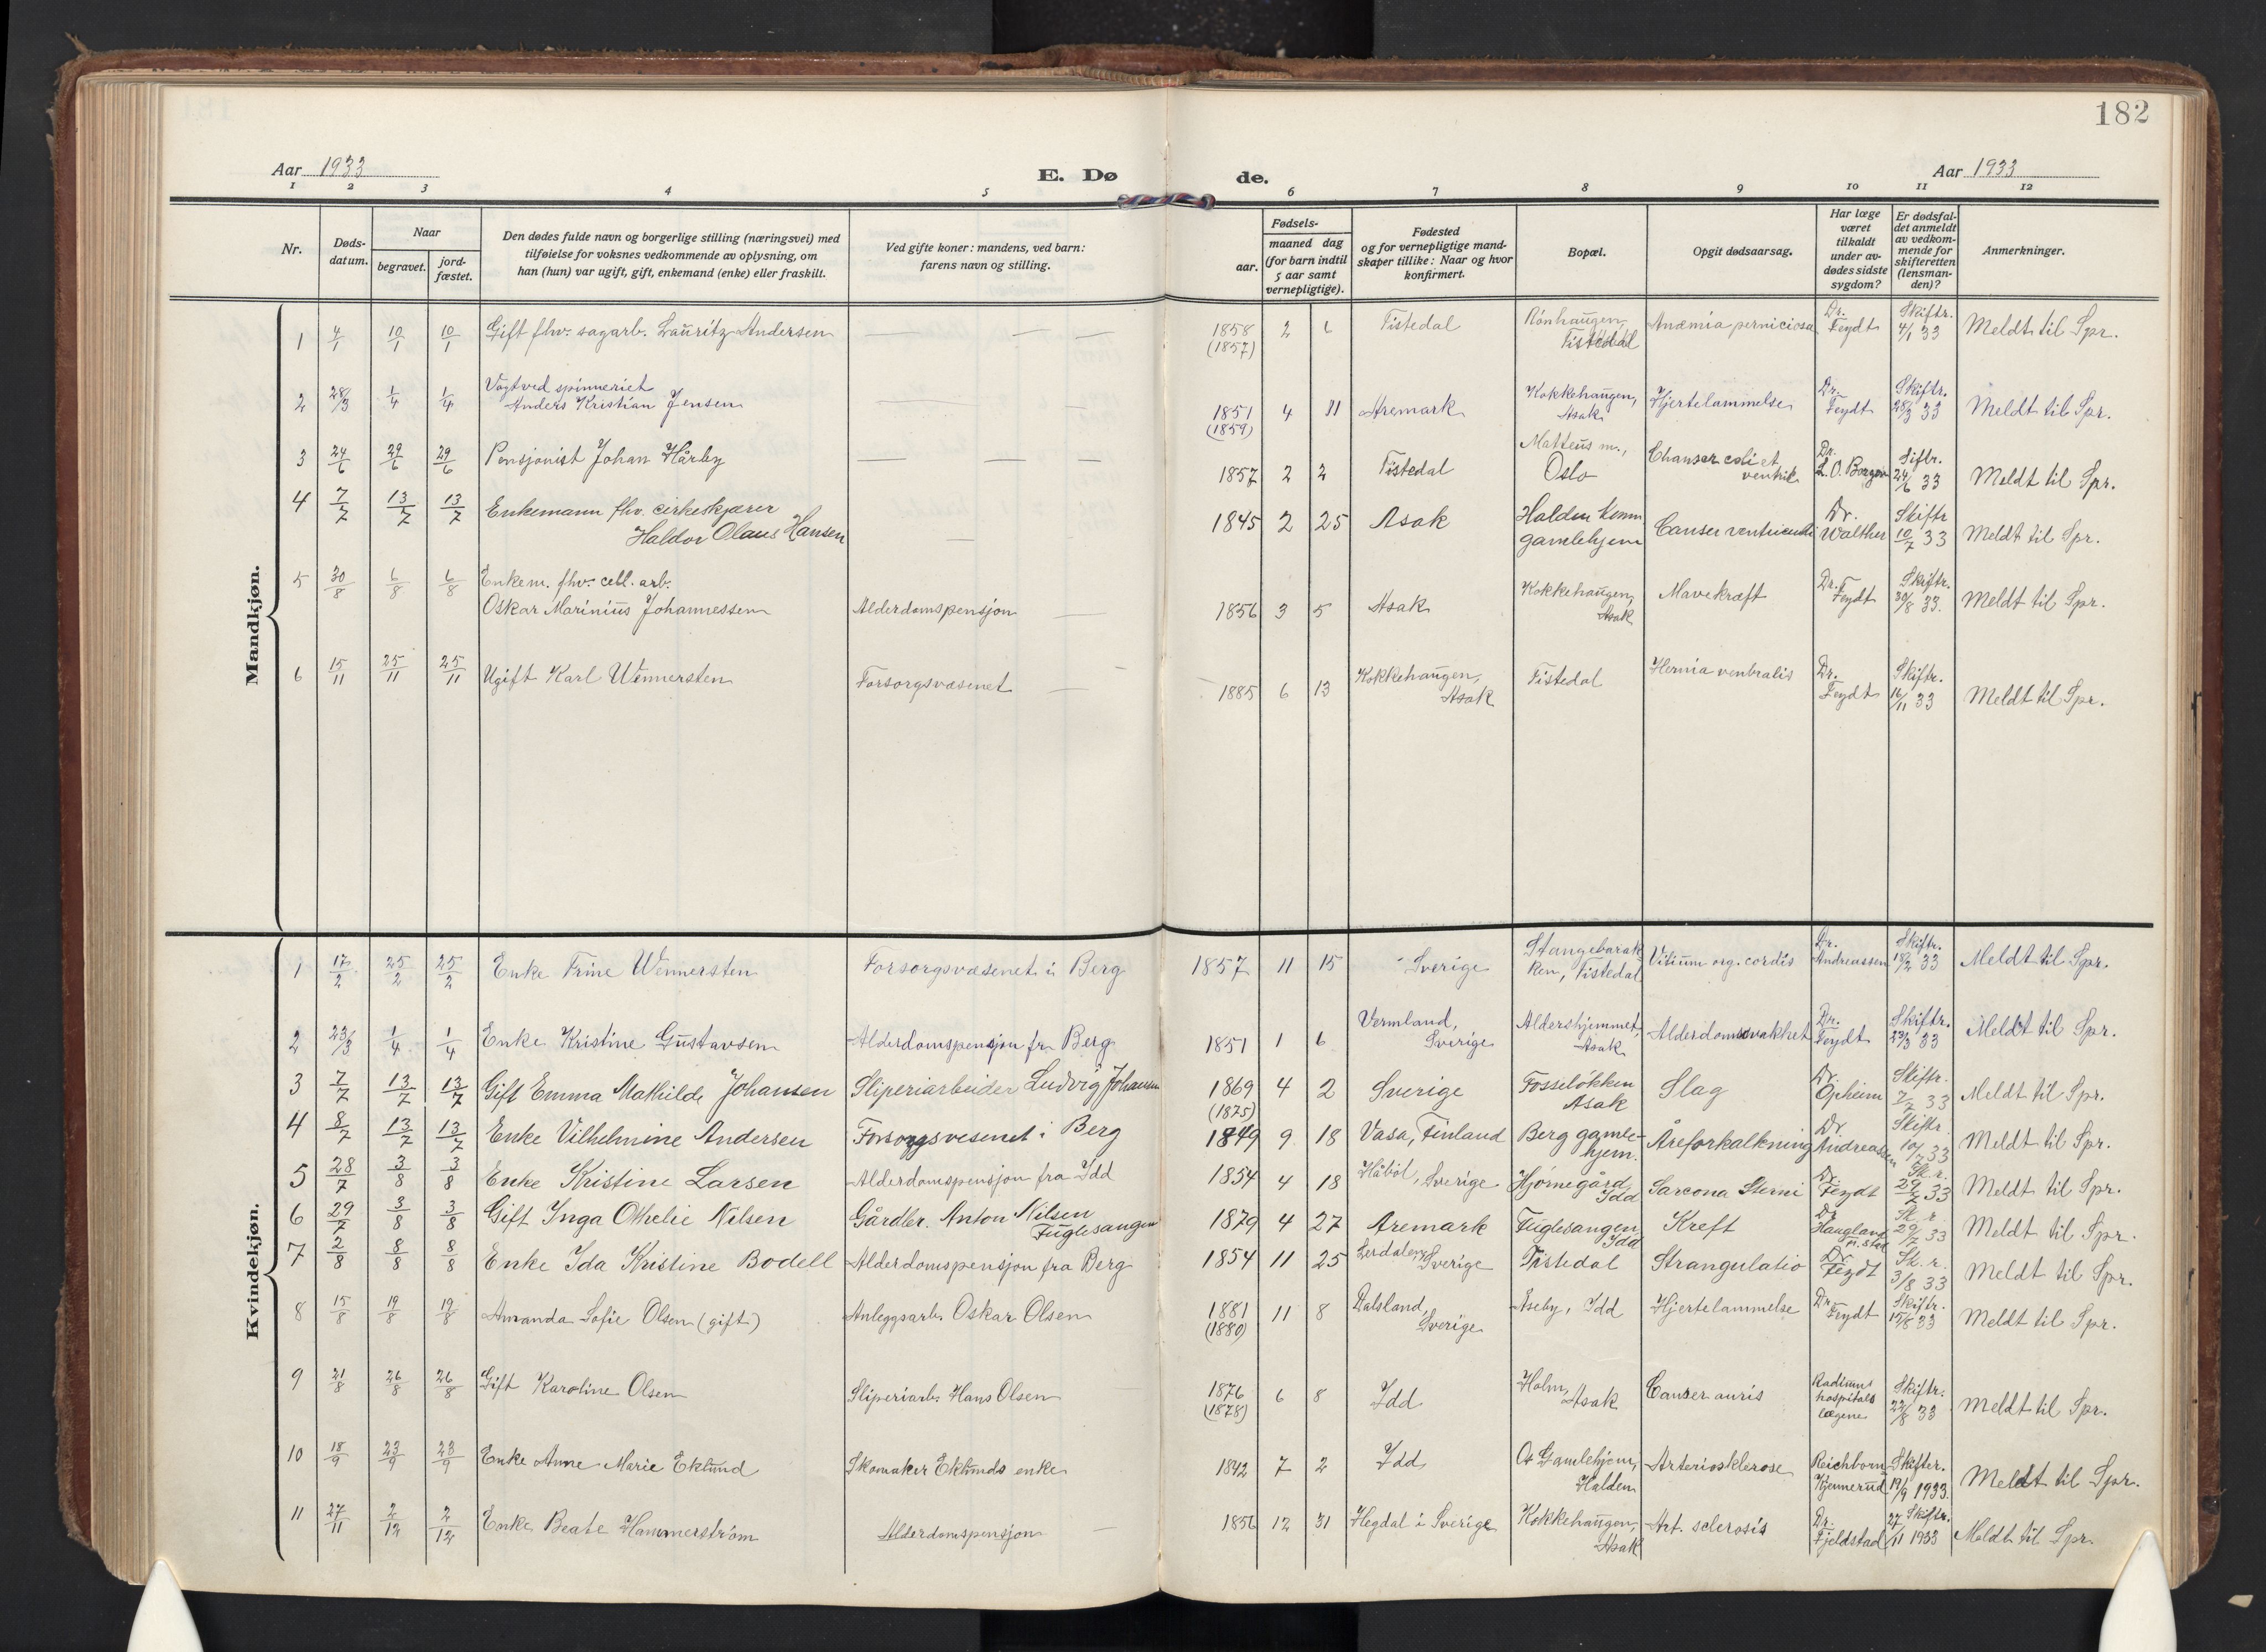 182
Aar 1933 E. Dø de. Aar 1933
1 2 3 4 5 6 7 8 9 10 11 12
Nr. Døds-datum. Naar begravet. jord-fæstet. Den dødes fulde navn og borgerlige stilling (næringsvei) med tilføielse for voksnes vedkommende av oplysning, om han (hun) var ugift, gift, enkemand (enke) eller fraskilt. Ved gifte koner: mandens, ved barn: farens navn og stilling. Fødsels- aar. maaned dag (for barn indtil 5 aar samt vernepligtige). Fødested og for vernepligtige mand-skaper tillike: Naar og hvor konfirmert. Bopæl. Opgit dødsaarsag. Har læge været tilkaldt under av-dødes sidste sygdom? Er dødsfal-det anmeldt av vedkom-mende for skifteretten (lensman-den)? Anmerkninger.
Mandkjøn.
1 4/1 10/1 10/1 Gift fhv. sagarb. Lauritz Andersen — — — 1858 (1857) 2 6 Tistedal Rönhaugen, Tistedal Anæmia perniciosa Dr. Feydt Skiftr. 4/1 33 Meldt til Spr.
2 28/3 1/4 1/4 Vagt ved spinneriet Anders Kristian Jensen — — 1851 (1859) 4 11 Aremark Kokkehaugen, Asak Hjertelammelse Dr. Feydt Skiftr. 28/3 33 Meldt til Spr.
3 24/6 29/6 29/6 Pensjonist Johan Hårby — — — 1857 2 2 Tistedal Matteus m., Oslo Chanser coli et ventrik Dr. L.O. Borgen Siftr. 24/6 33 Meldt til Spr.
4 7/7 13/7 13/7 Enkemann fhv. cirkeskjærer Haldor Olaus Hansen — 1845 2 25 Asak Halden komm. gamlehjem Canser ventriculi Dr. Walther Skiftr 10/7 33 Meldt til Spr.
5 30/8 6/8 6/8 Enkem. fhv. cell. arb. Oskar Marinius Johannessen Alderdomspensjon — 1856 3 5 Asak Kokkehaugen, Asak Mavekræft Dr. Feydt Skiftr. 30/8 33. Meldt til Spr.
6 15/11 25/11 25/11 Ugift Karl Wennersten Forsorgsvæsenet — 1885 6 13 Kokkehaugen, Asak Tistedal Hernia venbralis Dr. Feydt Skiftr. 16/11 33 Meldt til Spr.
Kvindekjøn.
1 17/2 25/2 25/2 Enke Trine Wennersten Forsorgsvæsenet i Berg 1857 11 15 Sverige Stangebarakken, Tistedal Vitium org. cordis Dr. Andreassen Skiftr. 18/2 33 Meldt til Spr.
2 23/3 1/4 1/4 Enke Kristine Gustavsen Alderdomspensjon fr. Berg 1851 1 6 Vermland, Sverige Aldershjemmet, Asak Alderdomssvakhet Dr. Feydt Skiftr. 23/3 33 Meldt til Spr.
3 7/7 13/7 13/7 Gift Emma Mathilde Johansen Sliperiarbeider Ludvig Johansen 1869 (1875) 4 2 Sverige Fosseløkken Asak Slag Dr. Opheim Skiftr. 7/7 33 Meldt til Spr.
4 8/7 13/7 13/7 Enke Vilhelmine Andersen Forsorgsvesenet i Berg 1849 9 18 Vasa, Finland Berg gamle-hjem. Åreforkalkning Dr Andreassen Skiftr. 10/7 33 Meldt til Spr.
5 28/7 3/8 3/8 Enke Kristine Larsen Alderdomspensjon fra Idd 1854 4 18 Håböl, Sverige Hjørnegård Idd Sarcona Sterni Dr Feydt Sk. r. 29/7 33 Meldt til Spr.
6 29/7 3/8 3/8 Gift Inga Othelie Nilsen Gårdbr. Anton Nilsen Fuglesangen 1879 4 27 Aremark Fuglesangen Idd Kreft Dr Haugland Sk. r 29/7 33 Meldt til Spr.
7 2/8 8/8 8/8 Enke Ida Kristine Bodell Alderdomspensjon fra Berg 1854 11 25 Sverige Tistedal Strangulatio Dr Feydt Sk. r. 3/8 33 Meldt til Spr.
8 15/8 19/8 19/8 Amanda Sofie Olsen (gift) Anleggsarb. Oskar Olsen 1881 (1880) 11 8 Dalsland, Sverige Aseby, Idd Hjertelammelse Dr. Feydt Skiftr. 15/8 33 Meldt til Spr.
9 21/8 26/8 26/8 Gift Karoline Olsen Sliperiarb. Hans Olsen 1876 (1878) 6 8 Idd Holm, Asak Canser auris Radiumhospitals lægene Skiftr. 22/8 33 Meldt til Spr.
10 18/9 23/9 23/9 Enke Anne Marie Eklund Skomaker Eklunds enke 1842 7 2 Idd Os Gamlehjem, Halden Arteriosklerose Reichborn-Kjennerud Skifter. 19/9 1933. Meldt til Spr.
11 27/11 2/12 2/12 Enke Beate Hammerström Alderdomspensjon — 1856 12 31 Hegdal i Sverige Kokkehaugen, Asak Art. sclerosis Dr. Fjeldstad Skiftr. 27/11 1933 Meldt til Spr.